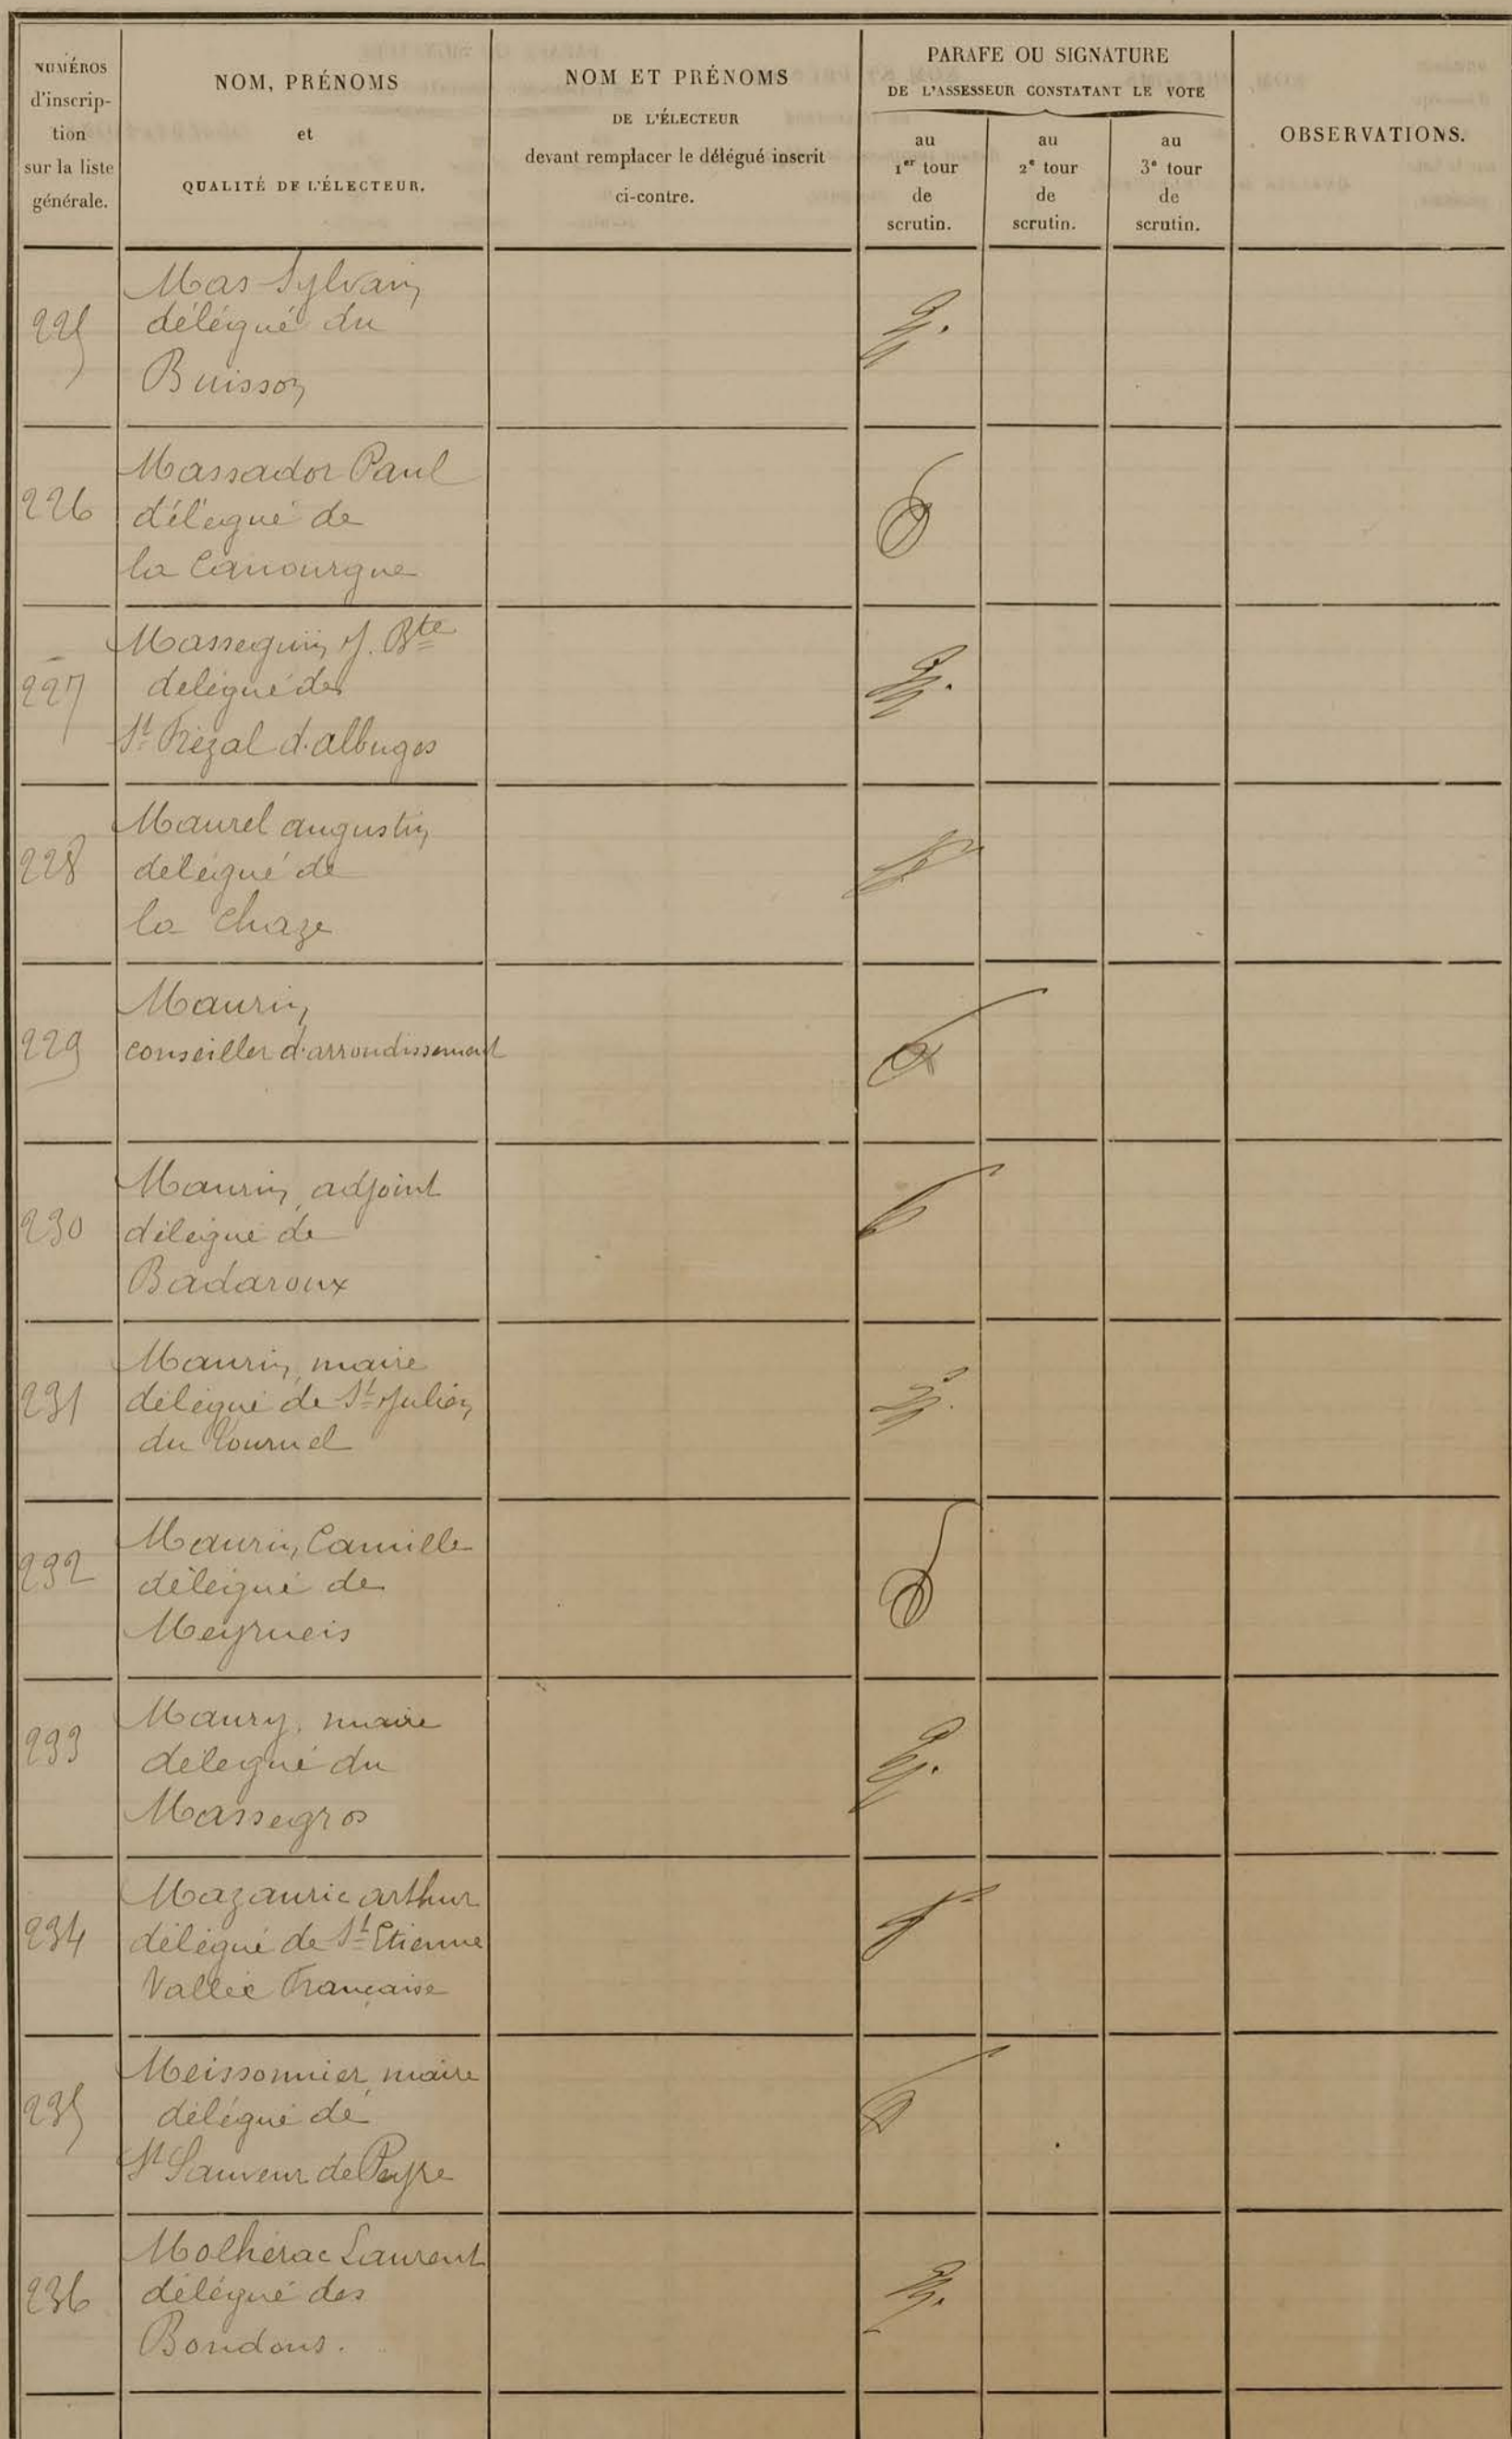 NUMÉROS
d'inscrip-
tion
sur la liste
générale.
NOM, PRÉNOMS
et
QUALITÉ DE L'ÉLECTEUR.
NOM ET PRÉNOMS
DE L'ÉLECTEUR
devant remplacer le délégué inscrit
ci-contre.
PARAFE OU SIGNATURE
DE L'ASSESSEUR CONSTATANT LE VOTE
au
1er tour
de
scrutin.
au
2e tour
de
scrutin.
au
3e tour
de
scrutin.
OBSERVATIONS.
225
Mas Sylvain
délégué du
Buisson
226
Massador Paul
délégué de
la Canourgue
227
Masseguin J. Bte
delégué de
St Frézal d'albuges
228
Maurel augustin
delégué de
la Chaze
229
Maurin
conseiller d'arrondissement
230
Maurin, adjoint
délégué de
Badaroux
231
Maurin, maire
délégué de St Julien
du Tournel
232
Maurin Camille
délégué de
Meyrueis
233
Maury, maire
délegué du
Massegros
234
Mazauric arthur
délégué de St Etienne
Vallée Française
235
Meissonnier, maire
délégué de
St Sauveur de Peyre
236
Molhérac Laurent
délégué des
Bondons.